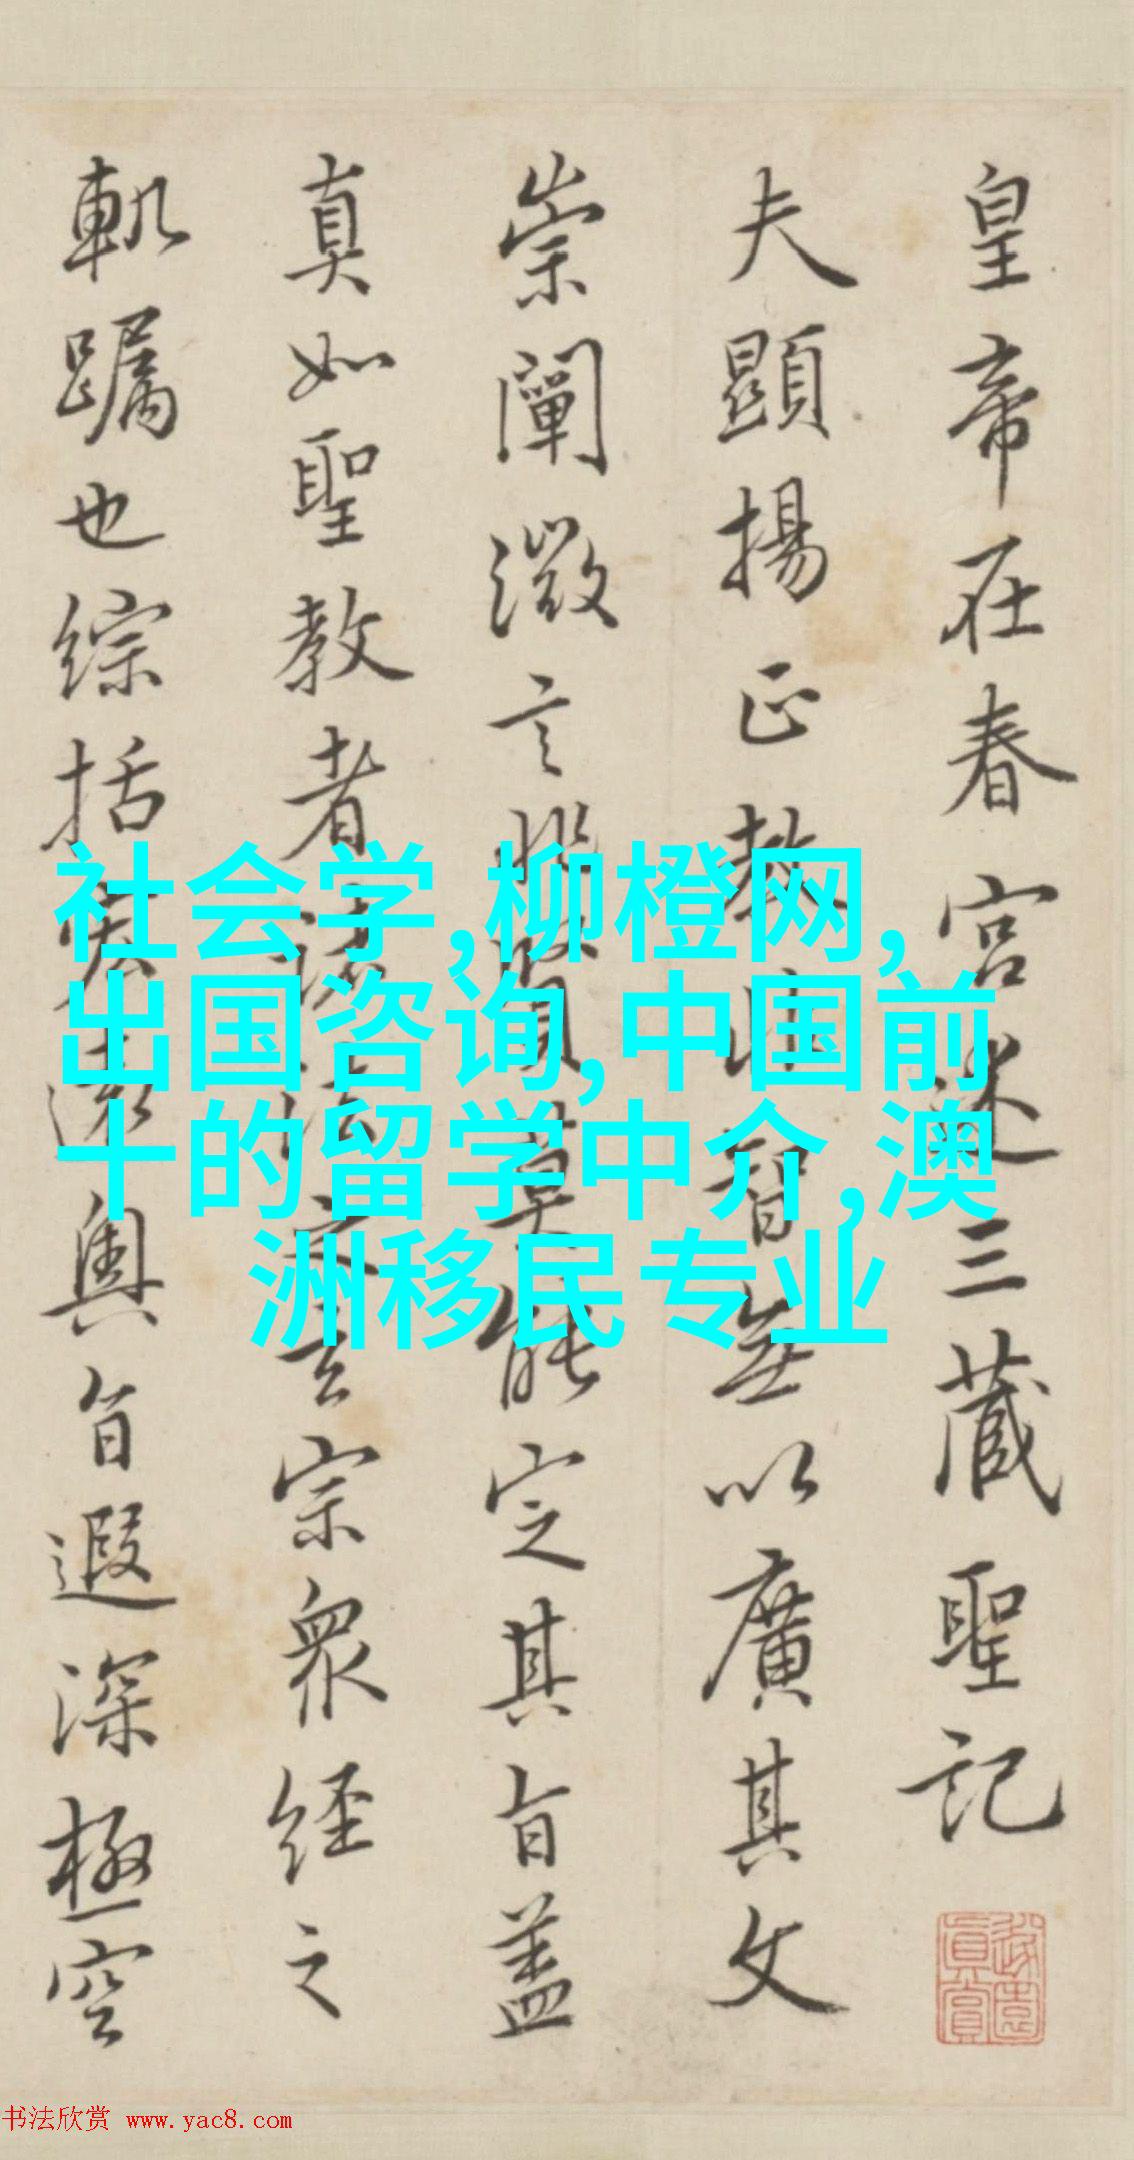 皇帝在春宮述三藏聖記
夫顯揚正教非智無以廣其文
崇闡微言非賢莫能定其旨蓋
真如聖教者諸法之玄宗眾經之
軌躅也綜括宏遠奧旨遐深極空
社会学,柳橙网,
出国咨询,中国前
十的留学中介,澳
洲移民专业
书法欣赏 www.yac8.com